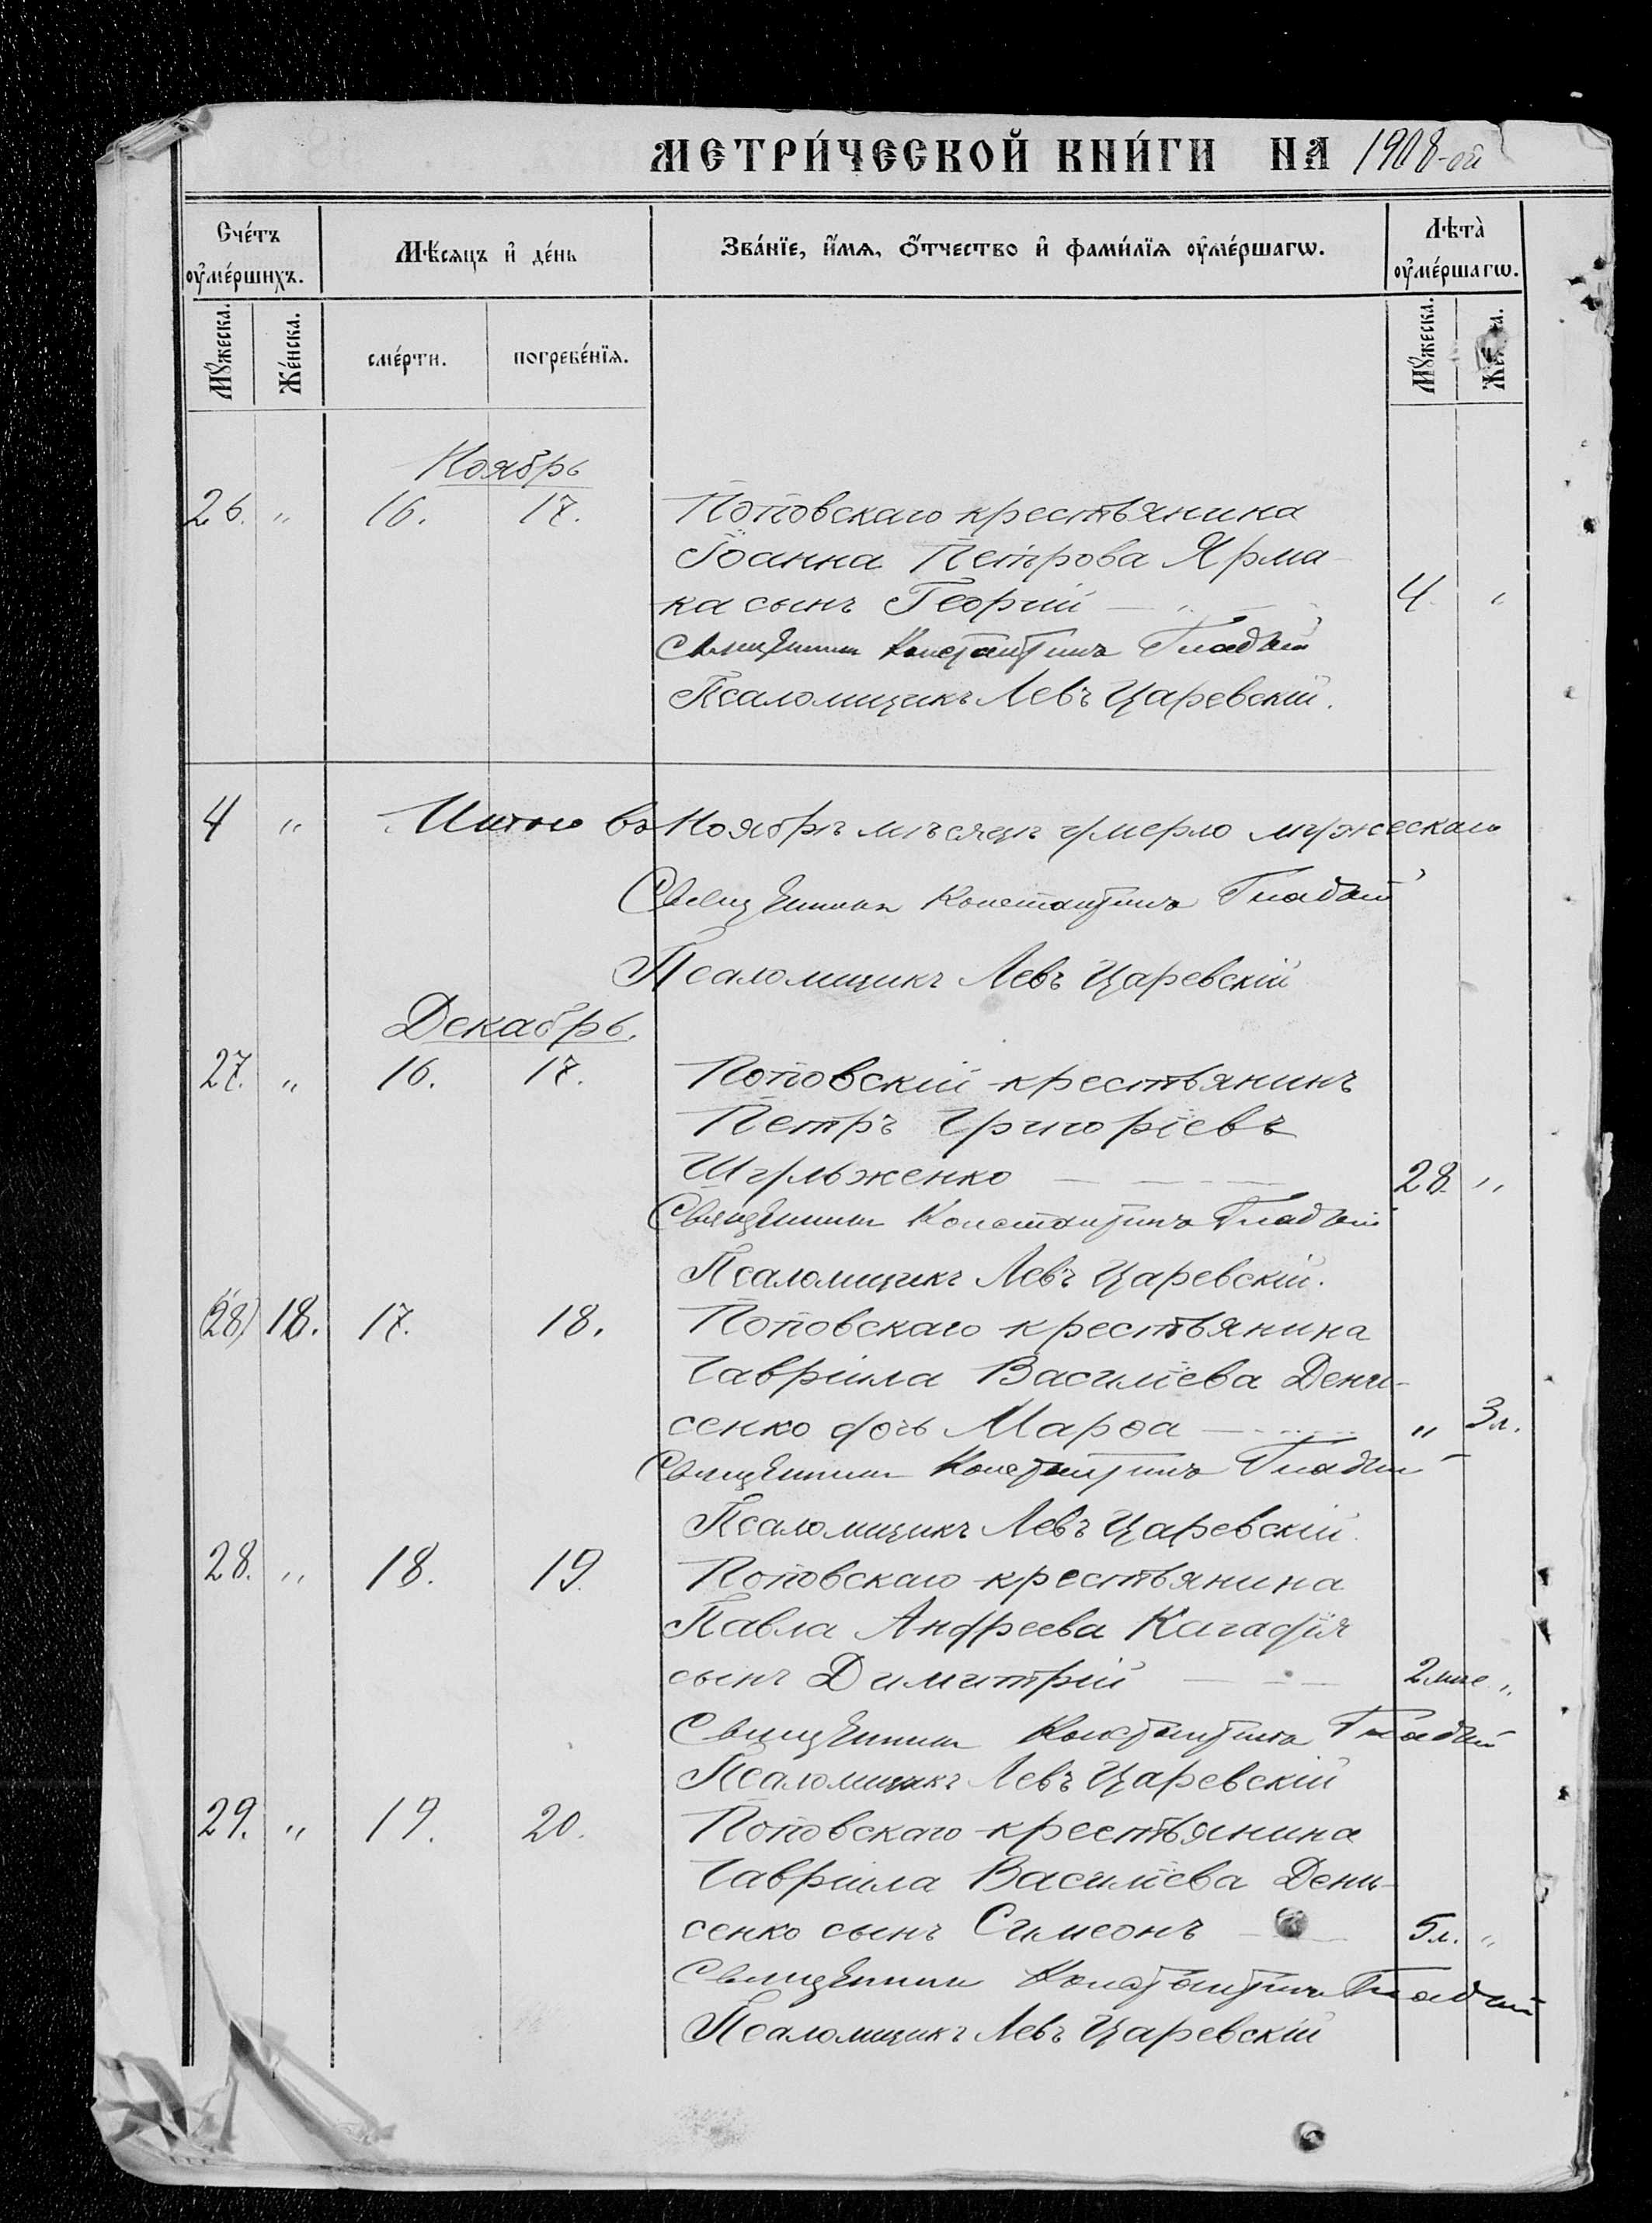 МЕТРИ́ЧЕСКОЙ КНИ́ГИ НА 1908-ой
Счéтъ ᲂу҆мéршихъ.
Мѣ́сяцъ и҆ дéнь
Звáнїе, и҆́мя, ѻ҆́тчество и҆ фами́лїя ᲂу҆мéршагѡ.
Лѣтà ᲂу҆мéршагѡ.
Мꙋ́жеска.
Же́нска.
смéрти.
погребéнїя.
Мꙋ́жеска.
Ноябрь
26. " 16. 17. Поповскаго крестьянина
Іоанна Петрова Ярма-
ка сынъ Георгій 4 "
Священникъ Константинъ Гладкій
Псаломщикъ Левъ Царевскій.
4 " Итого въ Ноябрѣ мѣсяцѣ умерло мужескаго
Священникъ Константинъ Гладкій
Псаломщикъ Левъ Царевскій
Декабрь.
27. " 16. 17. Поповскій крестьянинъ
Петръ Григоріевъ
Шульженко 28. "
Священникъ Константинъ Гладкій
Псаломщикъ Левъ Царевскій.
(28) 18. 17. 18. Поповскаго крестьянина
Гавріила Василіева Дени-
сенко дочь Марѳа " 3 л.
Священникъ Константинъ Гладкій
Псаломщикъ Левъ Царевскій.
28. " 18. 19. Поповскаго крестьянина
Павла Андреева
сынъ Димитрій 2 мѣс "
Священникъ Константинъ Гладкій
Псаломщикъ Левъ Царевскій
29. " 19. 20. Поповскаго крестьянина
Гавріила Василіева Дени-
сенко сынъ Симеонъ 5 л. "
Священникъ Константинъ Гладкій
Псаломщикъ Левъ Царевскій